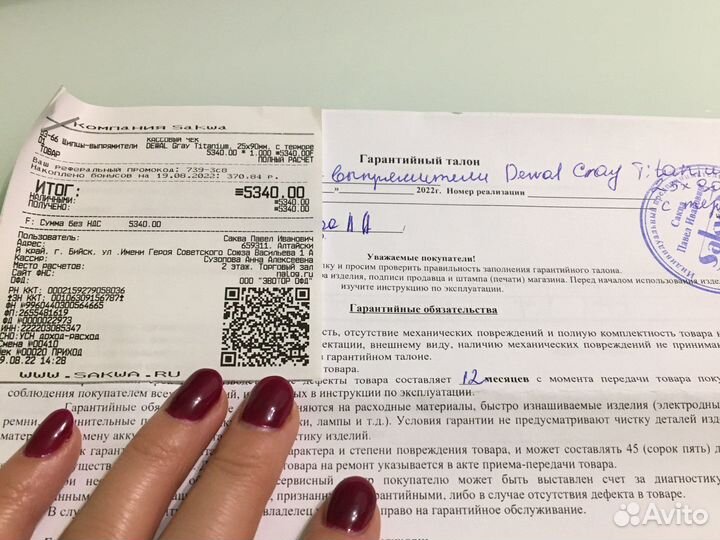 Компания Sakwa
КАССОВЫЙ ЧЕК
ЧЗ-66 Щипцы-выпрямители DEWAL Gray Titanium, 25х90мм. с терморе
5340.00 * 1.000 ≡5340.00
ТОВАР ПОЛНЫЙ РАСЧЕТ
Ваш реферальный промокод: 739-3c8
Накоплено бонусов на 19.08.2022: 370.84 р.
ИТОГ: ≡5340.00
НАЛИЧНЫМИ: ≡5340.00
ПОЛУЧЕНО: ≡5340.00
F: Сумма Без НДС 5340.00
Пользователь: Саква Павел Иванович
Адрес: 659311, Алтайски
й край, г. Бийск, ул .Имени Героя Советского Союза Васильева 1 А
Кассир: Сузопова Анна Алексеевна
Место расчетов: 2 этаж. Торговый зал
Сайт ФНС: nalog.ru
ОФД: ООО "ЭВОТОР ОФД"
РН ККТ: 0002159279058036
ЗН ККТ: 00106309156787
ФН №9960440300564665
ФП: 2655481619
ФД №0000022973
ИНН:222203085347
СНО:УСН доход-расход
Смена №00410
Чек №00020 ПРИХОД
19.08.22 14:28
WWW.SAKWA.RU
Гарантийный талон
выпрямители Dewal Gray Titanium
25х90
с тер
» 2022г. Номер реализации
Уважаемые покупатели!
ку и просим проверить правильность заполнения гарантийного талона.
ра изделия, подписи продавца и штампа (печати) магазина. Перед началом использования изде
изучите инструкцию по эксплуатации.
Гарантийные обязательства
сть, отсутствие механических повреждений и полную комплектность товара
ектации, внешнему виду, наличию механических повреждений не принимаю
в гарантийном талоне.
товара.
дефекты товара составляет 12 месяцев с момента передачи товара поку
соблюдения покупателем всех ий, из ных в инструкции по эксплуатации.
Гарантийные обяз яются на расходные материалы, быстро изнашиваемые изделия (электродны
ремни, нительные п ки, лампы и т.д.). Условия гарантии не предусматривают чистку деталей изде
матер мену акку ктику изделий.
к гаран рактера и степени повреждения товара, и может составлять 45 (сорок пять) д
ущество товара на ремонт указывается в акте приема-передачи товара.
ри нео сервисный покупателю может быть выставлен счет за диагностику
нным признани рантийными, либо в случае отсутствия дефекта в товаре.
В случ владелец право на гарантийное обслуживание.
Индивидуальный предприн
Саква
Павел Иванович
Sakwa
Avito